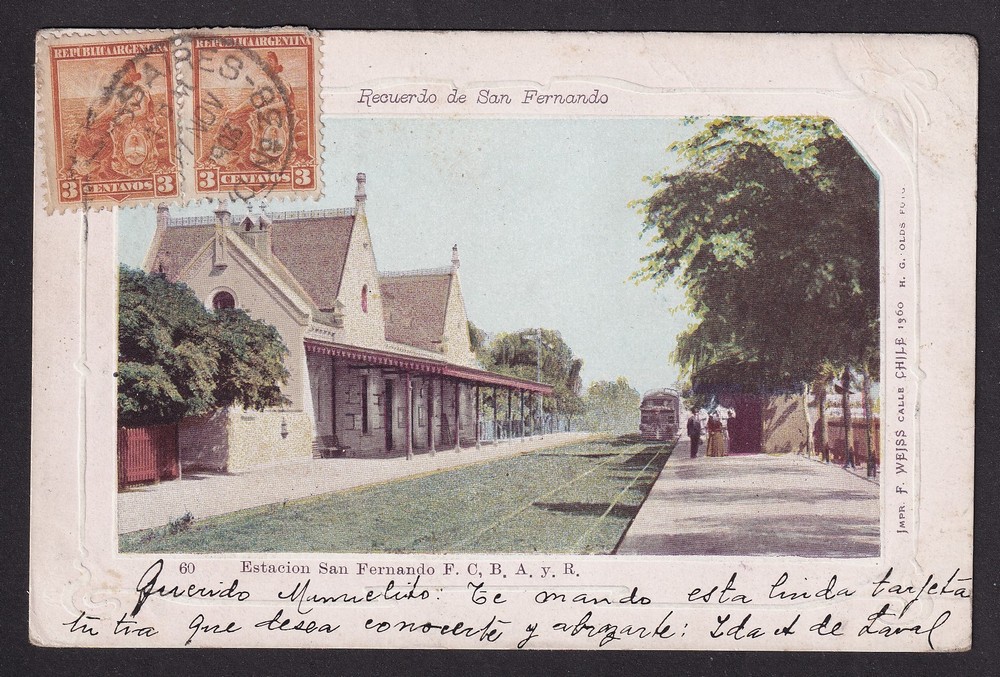 REPUBLICA ARGENTINA REPUBLICA ARGENTINA
3 CENTAVOS 3 3 CENTAVOS 3
NOV
Recuerdo de San Fernando
IMPR. F. WEISS CALLE CHILE 1960 H. G. OLDS FOTO
60 Estacion San Fernando F. C, B. A. y. R.
Querido Manuelito: Te mando esta linda tarjeta
tu tia que desea conocerte y abrazarte: Ida A de Laval